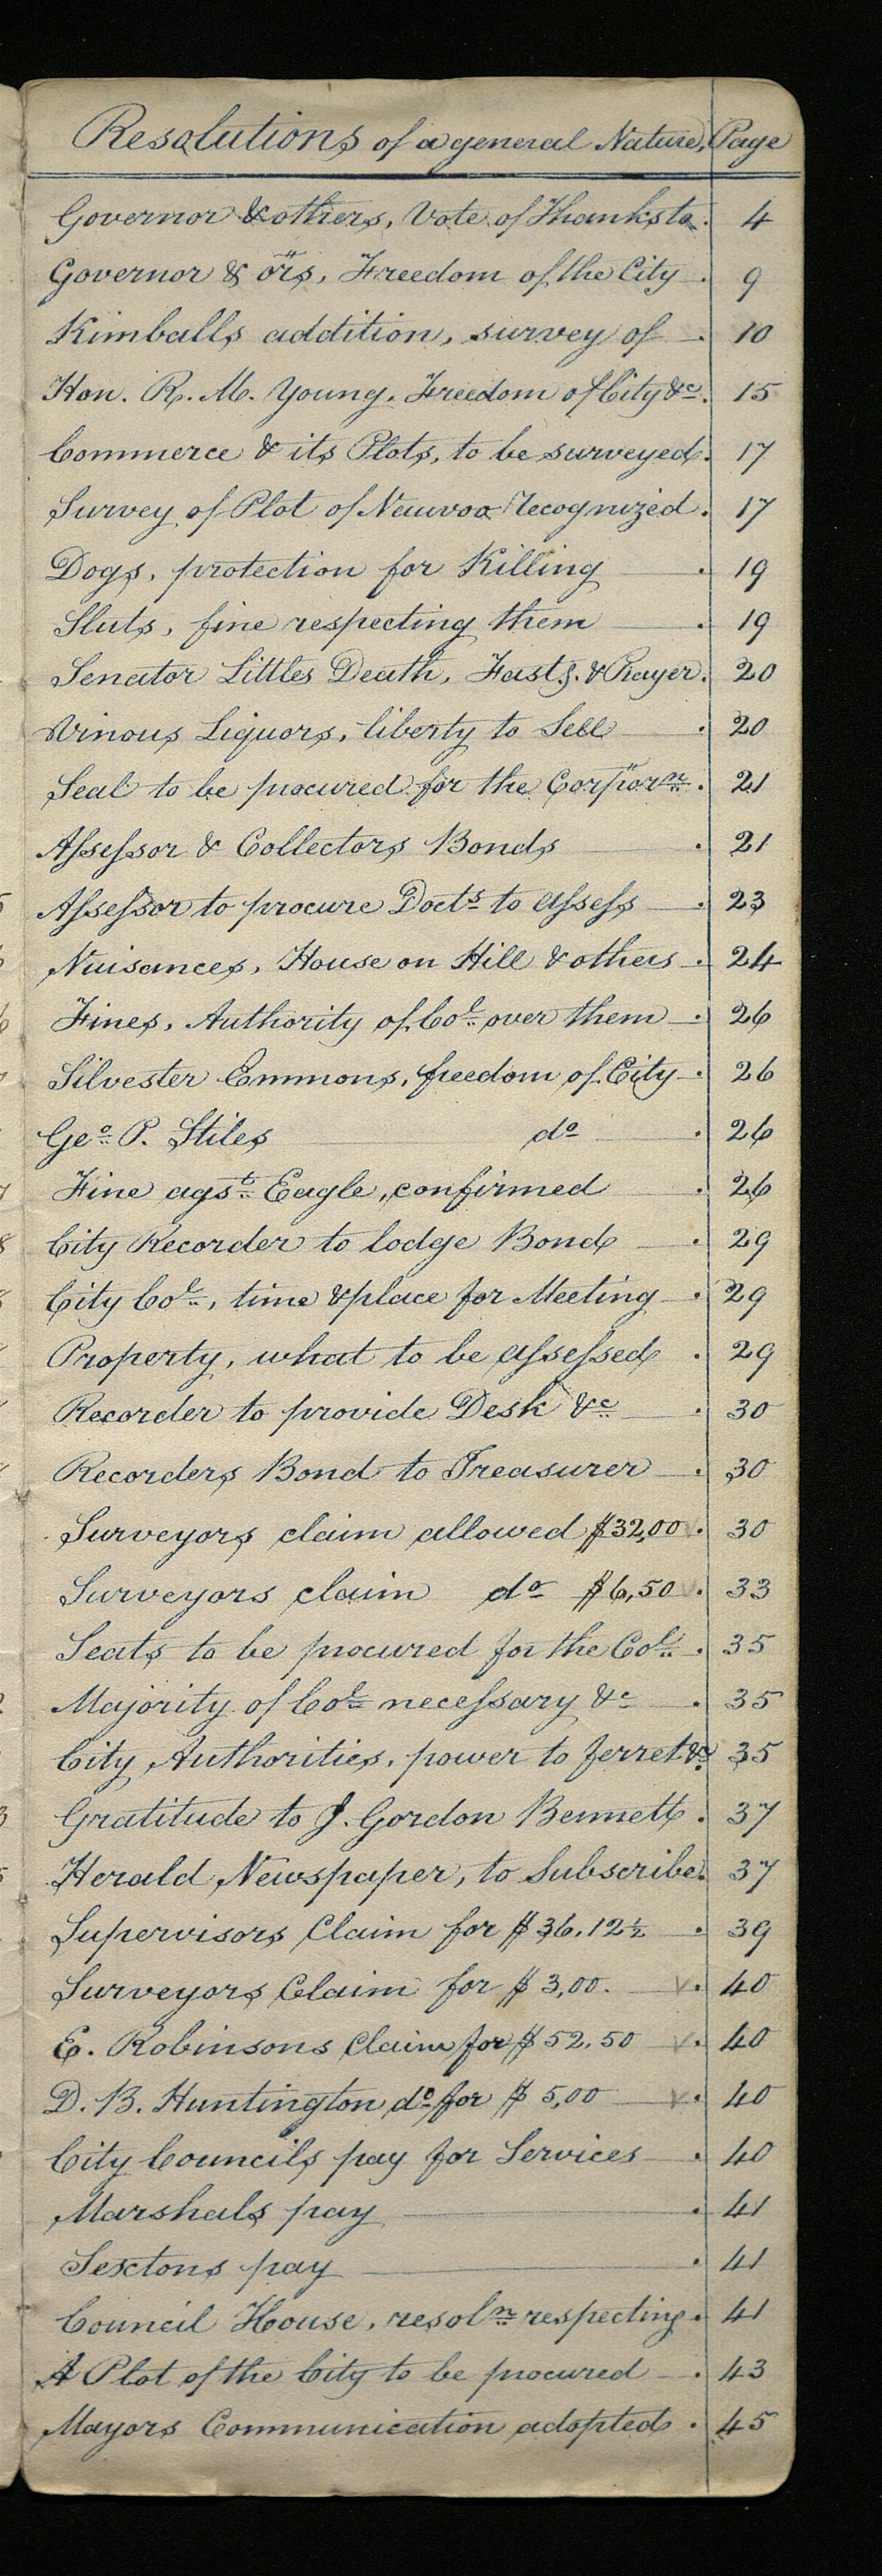 Resolutions of a general Nature, Page
Governor & others, Vote of Thanks to. 4
Governor & ors, Freedom of the City . 9
Kimballs addition, survey of . 10
Hon. R. M. Young, Freedom of City &c. 15
Commerce & its Plots, to be surveyed. 17
Survey of Plot of Nauvoo Recognized. 17
Dogs, protection for Killing . 19
Sluts, fine respecting them . 19
Senator Littles Death, Fastg. & Prayer. 20
Vinous Liquors, liberty to Sell . 20
Seal to be procured for the Corporn. 21
Assessor & Collectors Bonds . 21
Assessor to procure Docts to assess . 23
Nuisances, House on Hill & others . 24
Fines, Authority of Col. over them . 26
Silvester Emmons, freedom of City . 26
Geo. P. Stiles do . 26
Fine agst. Eagle, confirmed . 26
City Recorder to lodge Bond . 29
City Col., time & place for Meeting . 29
Property, what to be assessed . 29
Recorder to provide Desk &c . 30
Recorders Bond to Treasurer . 30
Surveyors claim allowed $32,00 . 30
Surveyors claim do $6,50 . 33
Seats to be procured for the Col. . 35
Majority of Col. necessary &c . 35
City Authorities, power to ferret &c. 35
Gratitude to J. Gordon Bennett . 37
Herald Newspaper, to Subscribe. 37
Supervisors Claim for $36.12½ . 39
Surveyors Claim for $3,00. . 40
E. Robinsons Claim for $52.50 . 40
D. B. Huntington do for $5,00 . 40
City Councils pay for Services . 40
Marshals pay . 41
Sextons pay . 41
Council House, resoln. respecting . 41
A Plot of the City to be procured . 43
Mayors Communication adopted . 45